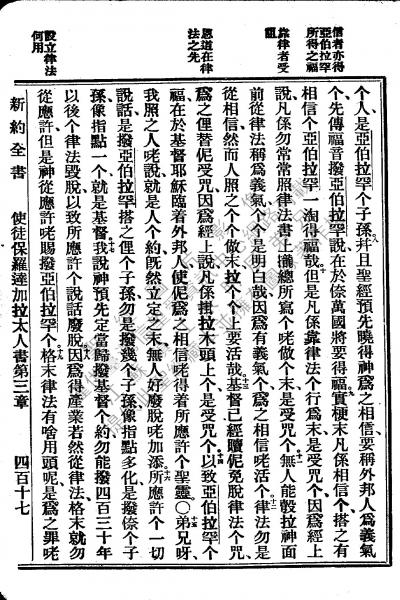 信者亦得
亞伯拉罕
所得之福
靠律者受
詛
恩道在律
法之先
設立律法
何用
個人是亞伯拉罕個子孫、八幷且聖經預先曉得神爲之相信、要稱外邦人爲義氣
個、先傳福音撥亞伯拉罕說、在於儂萬國將要得福、九實梗末凡係相信個、搭之有
相信個亞伯拉罕一淘得福哉、十但是凡係靠律法個行爲末、是受咒個、因爲經上
說、凡係勿常常照律法書上攏總所寫個咾做個末、是受咒個、十一無人能彀拉神面
前從律法稱爲義氣個、個是明白哉、因爲有義氣個、爲之相信咾活個、十二律法勿是
從相信、然而人照之個個做末、拉個個上要活哉、十三基督已經贖伲免脫律法個咒、
爲之俚替伲受咒、因爲經上說、凡係掛拉木頭上個、是受咒個、十四以致亞伯拉罕個
福、在於基督耶穌臨着外邦人、使伲爲之相信咾得着所應許個聖靈○十五弟兄呀、
我照之人咾說、就是人個約旣然立定之末、無人好廢脫咾加添、十六所應許個一切
說話、是撥亞伯拉罕搭之俚個子孫、勿是撥幾個子孫、像指點多化、是撥儂個子
孫、像指點一個、就是基督、十七我說神預先定當歸撥基督個約、勿能撥四百三十年
以後個律法毀脫、以致所應許個說話廢脫、十八因爲得產業若然從律法、格末就勿
從應許、但是神從應許咾賜撥亞伯拉罕個、十九格末律法有啥用頭呢、是爲之罪咾
新約全書 使徒保羅達加拉太人書第三章 四百十七